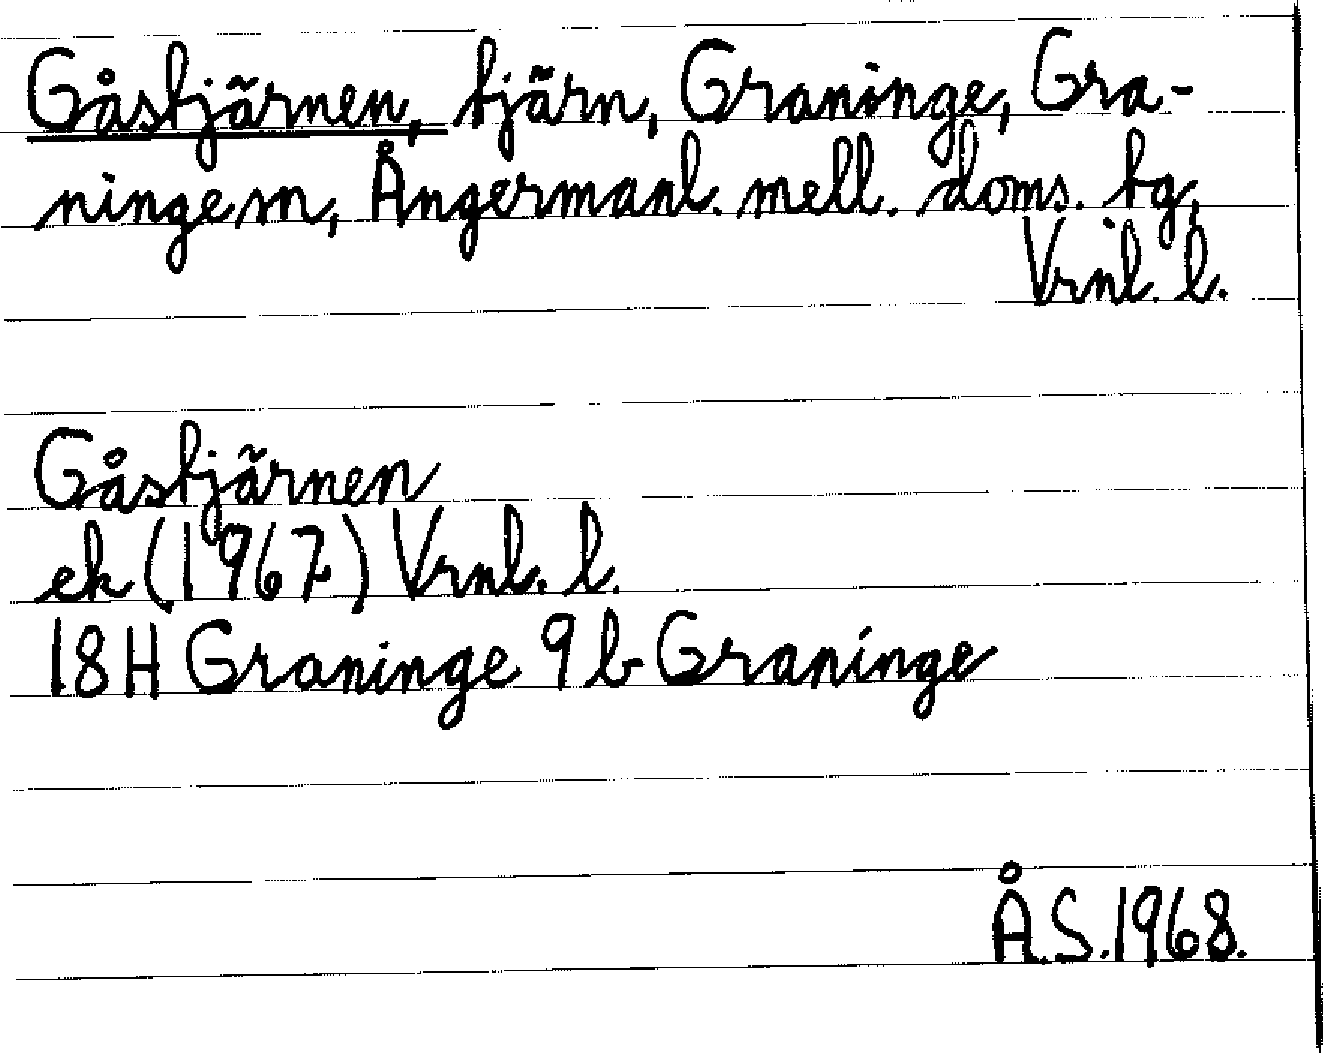 Gåstjärnen, tjärn, Graninge, Gra-
ningesn, Ångermanl. mell. doms. tg,
Vrnl. l.
Gåstjärnen
ek (1967) Vrnl. l.
18H Graninge 9b Graninge
Å.S. 1968.